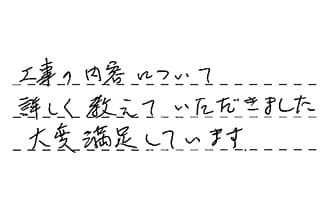 工事の内容について
詳しく教えていただきました
大変満足しています